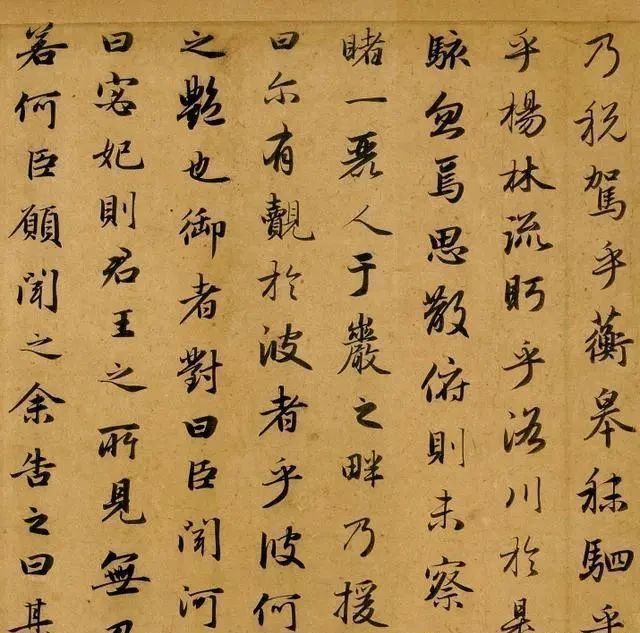 乃税駕乎蘅皋秣駟乎
乎楊林流眄乎洛川於是
駭忽焉思散俯則未察
睹一麗人于巖之畔乃援
曰尔有覿於彼者乎彼何
之艷也御者對曰臣聞河
曰宓妃則君王之所見無乃
若何臣願聞之余告之曰其